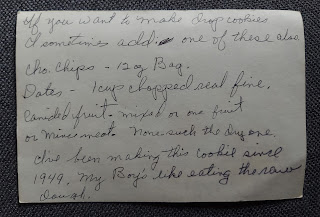 If you want to make drop cookies
I sometimes add one of these also
Cho. Chips - 12 oz Bag.
Dates - 1 cup chopped real fine.
Candied fruit - mixed or one fruit
or Mincemeat. None such the dry one.
I've been making this cookie since
1949. My Boy's like eating the raw
dough.